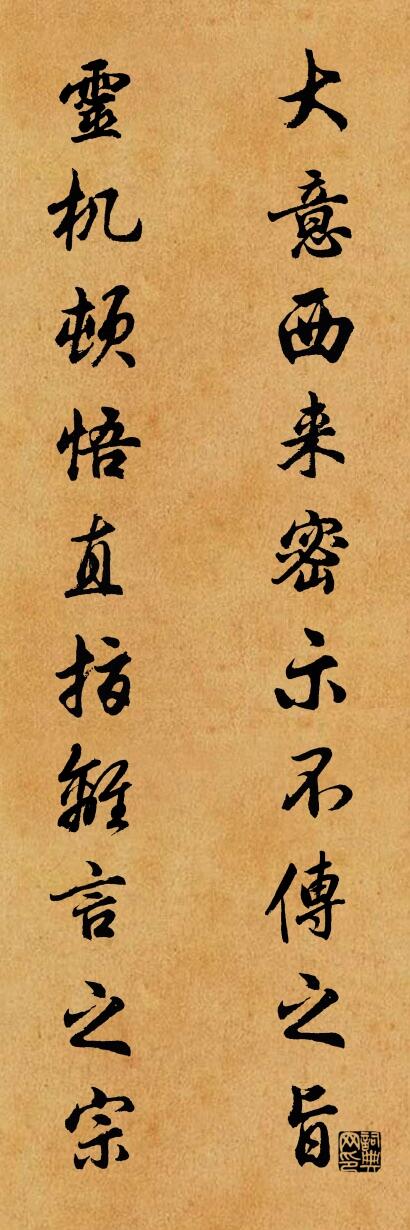 大意西来密示不傳之旨
靈机頓悟直指離言之宗
詞典网印